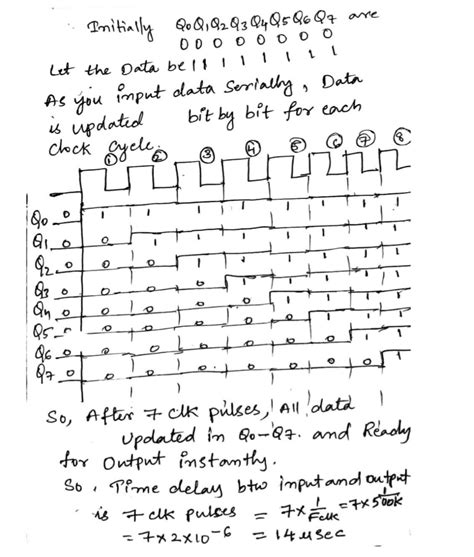 Initially Q0Q1Q2Q3Q4Q5Q6Q7 are
0 0 0 0 0 0 0 0
Let the Data be 1 1 1 1 1 1 1 1
As you input data Serially, Data
is updated bit by bit for each
clock cycle.
① ② ③ ④ ⑤ ⑥ ⑦ ⑧
Q0 0 1 1 1 1 1 1 1 1
Q1 0 0 1 1 1 1 1 1 1
Q2 0 0 0 1 1 1 1 1 1
Q3 0 0 0 0 1 1 1 1 1
Q4 0 0 0 0 0 1 1 1 1
Q5 0 0 0 0 0 0 1 1 1
Q6 0 0 0 0 0 0 0 1 1
Q7 0 0 0 0 0 0 0 0 1
So, After 7 clk pulses, All data
Updated in Q0-Q7. and Ready
for Output instantly.
So, Time delay btw input and output
is 7 clk pulses = 7 × 1/Fclk = 7 × 1/500k
= 7 × 2 × 10^-6 = 14 μsec